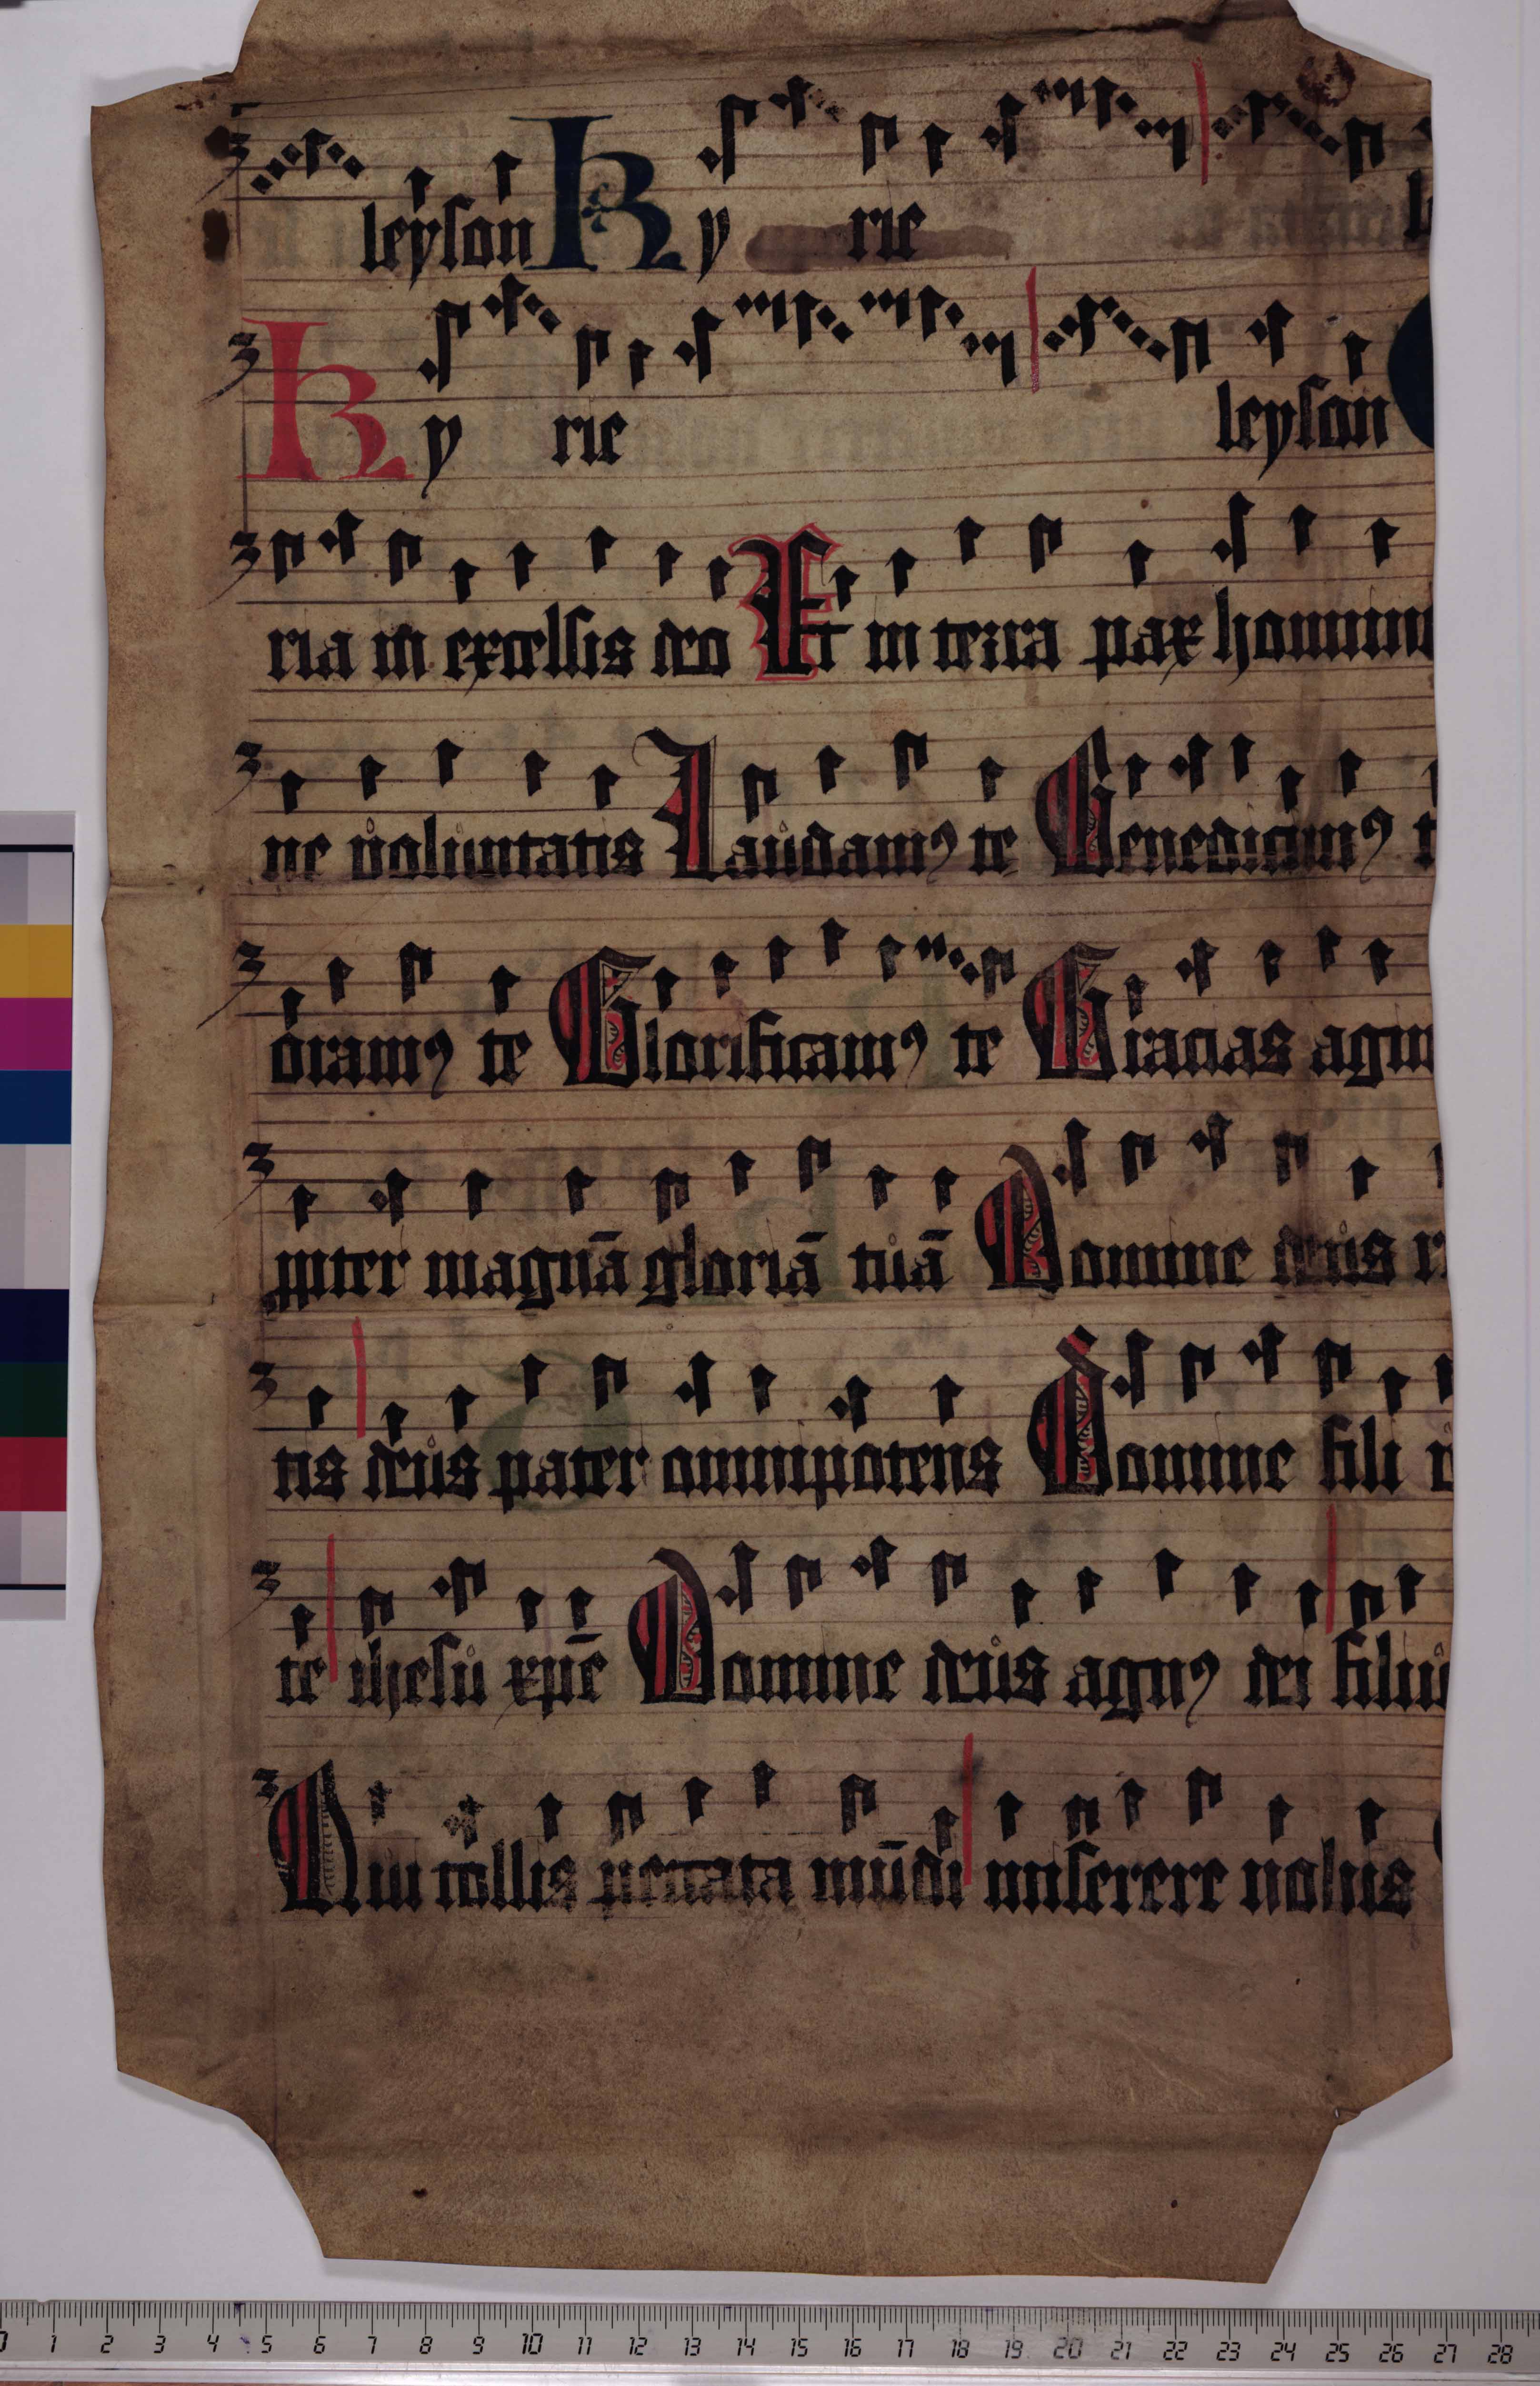 leyson Ky rie l
Ky rie leyson
ria in excelsis deo Et in terra pax homini
ne voluntatis Laudamꝰ te Benedicimꝰ t
oramꝰ te Glorificamꝰ te Gracias agim
ꝓpter magnā gloriā tuā Domine deus r
tis deus pater omnipotens Domine fili v
te ihesu xpē Domine deus agnꝰ dei filiu
Qui tollis peccata mūdi miserere nobis
0 1 2 3 4 5 6 7 8 9 10 11 12 13 14 15 16 17 18 19 20 21 22 23 24 25 26 27 28